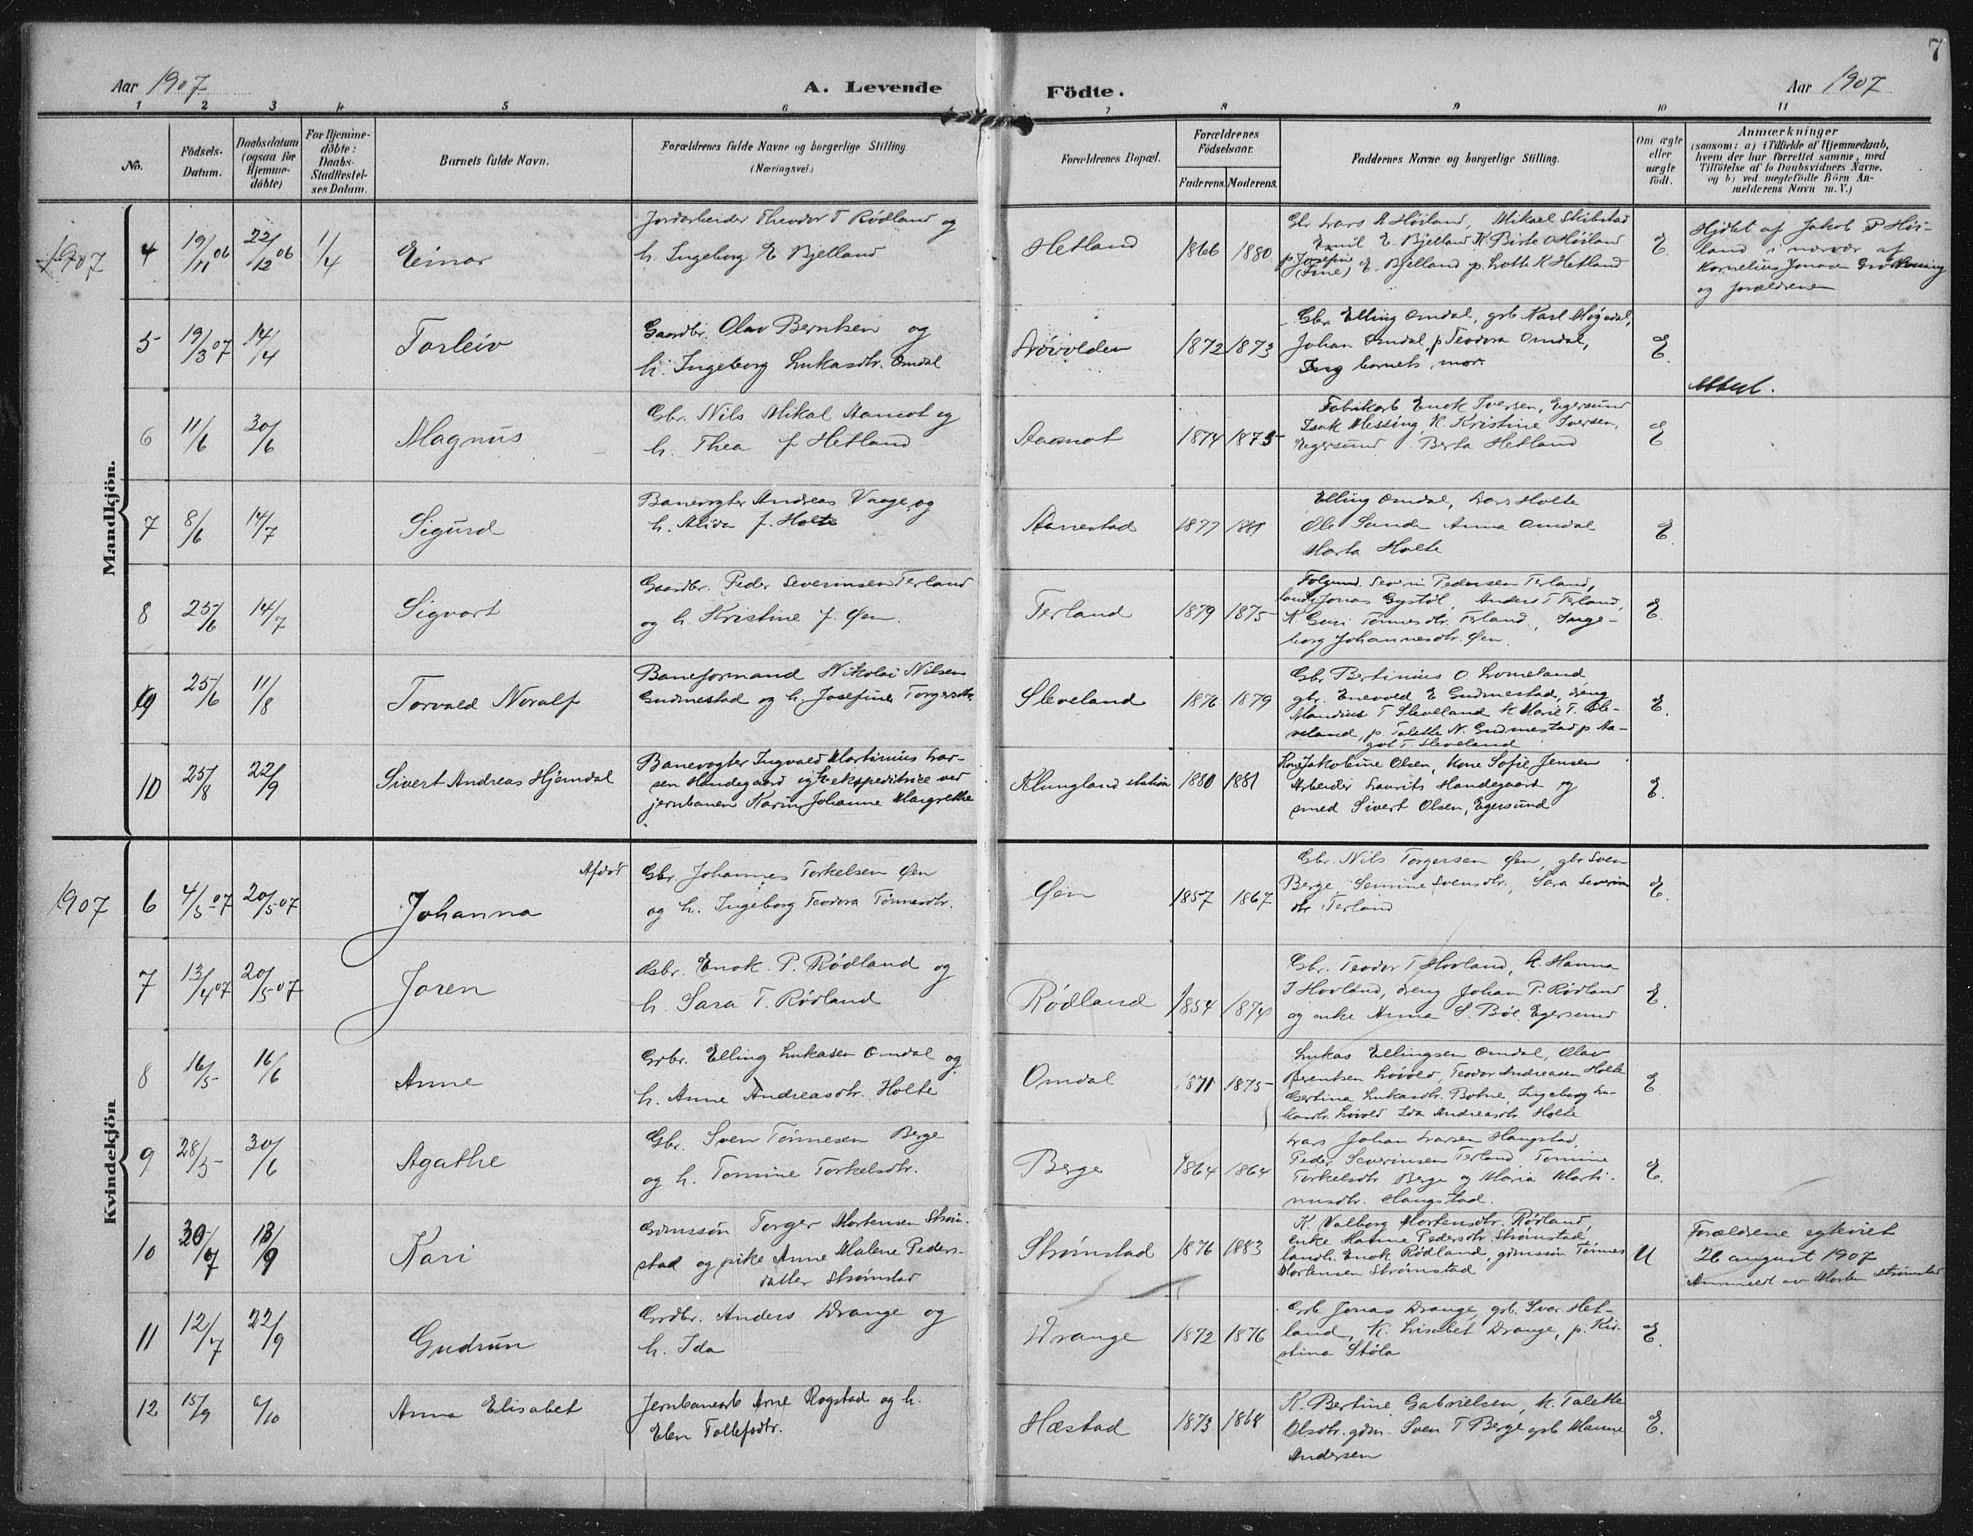 7
Aar 1907
A. Levende Födte.
Aar 1907
1 2 3 4 5 6 7 8 9 10 11
No.
Födsels-Datum.
Daabsdatum (ogsaa for Hjemmedöbte)
For Hjemmedöbte: Daabs-Stadfæstelses Datum.
Barnets fulde Navn.
Forældrenes fulde Navne og borgerlige Stilling. (Næringsvei.)
Forældrenes Bopæl.
Forældrenes Födselsaar.
Faderens. Moderens.
Faddernes Navne og borgerlige Stilling.
Om ægte eller uægte födt.
Anmærkninger
(saasom: a) i Tilfælde af Hjemmedaab, hvem der har forrettet samme, med Tilföielse af to Daabsvidners Navne, og b) ved uægtefödte Börn Anmelderens Navn m. V.)
Mandkjön.
1907
4 19/11 06 22/12 06 1/4 Einar
Jordarbeider Theodor T Rødland og
h. Ingeborg E Bjelland
Hetland 1866 1880
Gbr Lars A Høiland, Mikael Skibstad
Emil E. Bjelland K Birte O Høiland
p Josefine (Fine) E. Bjelland p. Lotte K Hetland
E.
Hjdbt af Jakob P Høiland i nærvær af
Kornelius Jonsen
og forældrene
5 19/3 07 14/4 Torleiv
Gaardbr. Olav Berntsen og
h. Ingeborg Lukasdtr. Omdal
1872 1873
Gbr Elling Omdal, grb Karl Høgedal,
Johan Omdal, p Teodora Omdal,
barnets mor
E.
6 11/6 30/6 Magnus
Gbr. Nils Mikal Aamot og
h. Thea f Hetland
Aamot 1874 1875
Fabrikarb Enok Iversen, Egersund
Isak Messing, K. Kristine Iversen,
Egersund. Berta Hetland
E
7 8/6 14/7 Sigurd
Banevogter Andreas Vaage og
h. Alida f. Holte
Aarrestad 1877 1881
Elling Omdal, Lars Holte
Ole Sande Anna Omdal
Marta Holte
E.
8 25/6 14/7 Sigvart
Gaardbr. Peder Severinsen Terland
og h. Kristine f. Øen.
Terland 1879 1875
Folgmd. Severin Pedersen Terland,
Jonas Gystøl, Anders T Terland,
K Guri Tønnesdtr. Terland, Ingeborg Johannesdtr. Øen.
E.
9 25/6 11/8 Torvald Noralf
Baneformand Nikolai Nilsen
Gudmestad og h. Josefine Torgersdtr.
Sleveland 1876 1879
Gbr Bertinius O Lomeland
gbr. Enevold E Gudmestad, dreng
Mandius T Sleveland k Marie T. Sleveland, p. Talette N. Gudmestad p Aagot T Sleveland
E.
10 25/8 22/9 Sivert Andreas Hjemdal
Banevogter Ingvald Martinius Larsen Handegaard og h. ekspeditrice ved
jernbanen Karin Johanne Margrethe
Klungland station 1880 1881
Kone Jakobine Olsen, Kone Sofie Jensen
Arbeider Laurits Handegaard og
smed Sivert Olsen, Egersund
E.
Kvindekjön
1907
6 4/5 07 20/5 07 Johanna Afdöd
Gbr. Johannes Torkelsen Øen
og h. Ingeborg Teodora Tønnesdtr.
Øen 1857 1867
Gbr. Nils Torgersen Øen, gbr Sven
Berge, Semine Svensdtr, Sara Severindtr Terland
E.
7 13/4 07 20/5 07 Joren
Gbr. Enok P. Rødland og
h. Sara T. Rødland
Rødland 1854 1874
Gbr. Teodor T Hovland, K. Hanna
T Hovland, dreng Johan P. Rødland
og enke Anna S. Bøe, Egersund
E.
8 16/5 16/6 Anne
Grbr. Elling Lukasen Omdal og
h. Anne Andreasdtr. Holte
Omdal 1871 1875
Lukas Ellingsen Omdal, Olav
Berentsen, Teodor Andreasen Holte
Gertina Lukasdtr. Botne, Ingeborg Lukasdtr. Ida Andreasdtr. Holte
E
9 28/5 30/6 Agathe
Gbr. Sven Tønnesen Berge
og h. Tomine Torkelsdtr.
Berge 1864 1864
Lars Johan Larsen Haugstad,
Peder Severinsen Terland, Tomine
Torkelsdtr Berge og Maria Martinusdtr. Haugstad.
E.
10 30/7 13/9 Kari
Gdmssøn Torger Mortensen Strømstad og pike Anne Malene Pedersdatter Strømstad
Strømstad 1876 1883
K Valborg Mortensdtr. Rødland,
enke Hanne Pedersdtr Strømstad,
landh. Enok Rødland, gdmssøn Tønnes
Mortensen Strømstad
U
Forældrene egteviet
26 august 1907
Anmeldt av Morten Strømstad
11 12/7 22/9 Gudrun
Grdbr. Anders Drange og
h. Ida
Drange 1872 1876
Grb Jonas Drange, grb. Ivar Hetland, K. Lisabet Drange, p. Kistina Støla
E.
12 15/9 6/10 Anna Elisabet
Jernbanearb Arne Rogstad og h.
Elen Tollefsdtr.
Hæstad 1873 1868
K. Bertine Gabrielsen, K. Talette
Olsdtr. gdm. Sven T Berge grb Hanne
Andersen
E.